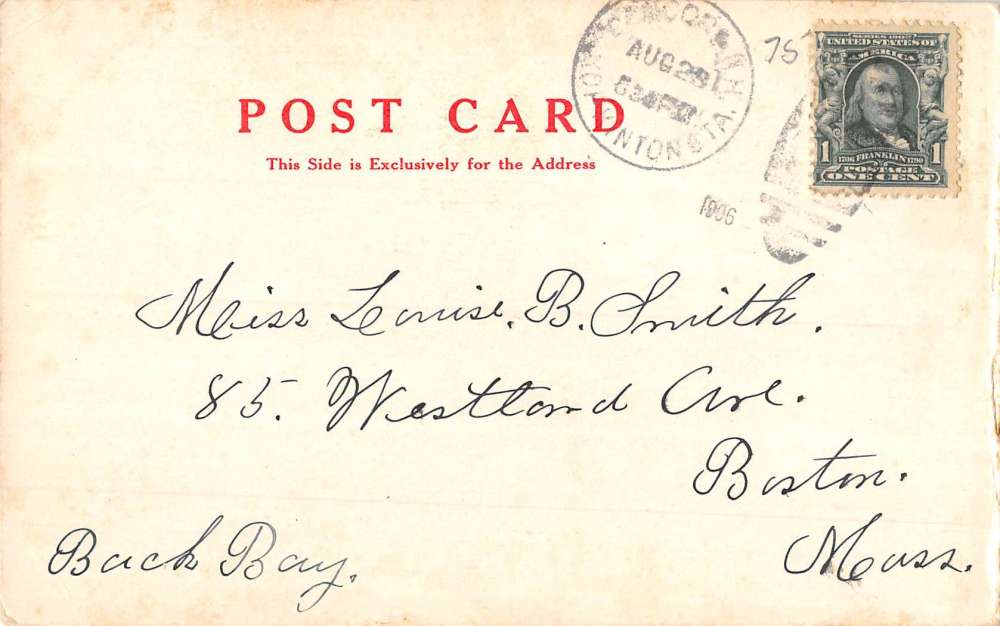 POST CARD
This Side is Exclusively for the Address
AUG 28
1906
SERIES 1902
UNITED STATES OF
AMERICA
1 1706 FRANKLIN 1790 1
POSTAGE
ONE CENT
Miss Louise. B. Smith.
85. Westland Ave.
Boston.
Back Bay.
Mass.